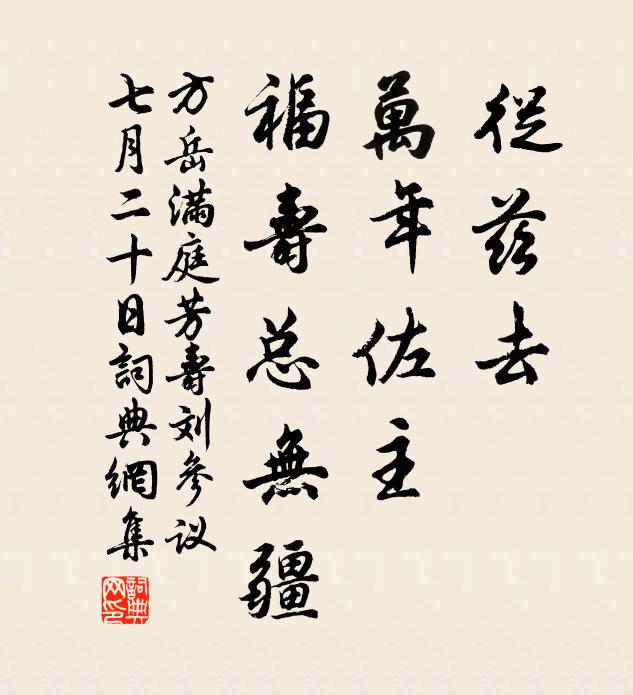 從茲去
萬年佐主
福壽总無疆
方岳滿庭芳壽刘參议
七月二十日詞典網集
詞典网印